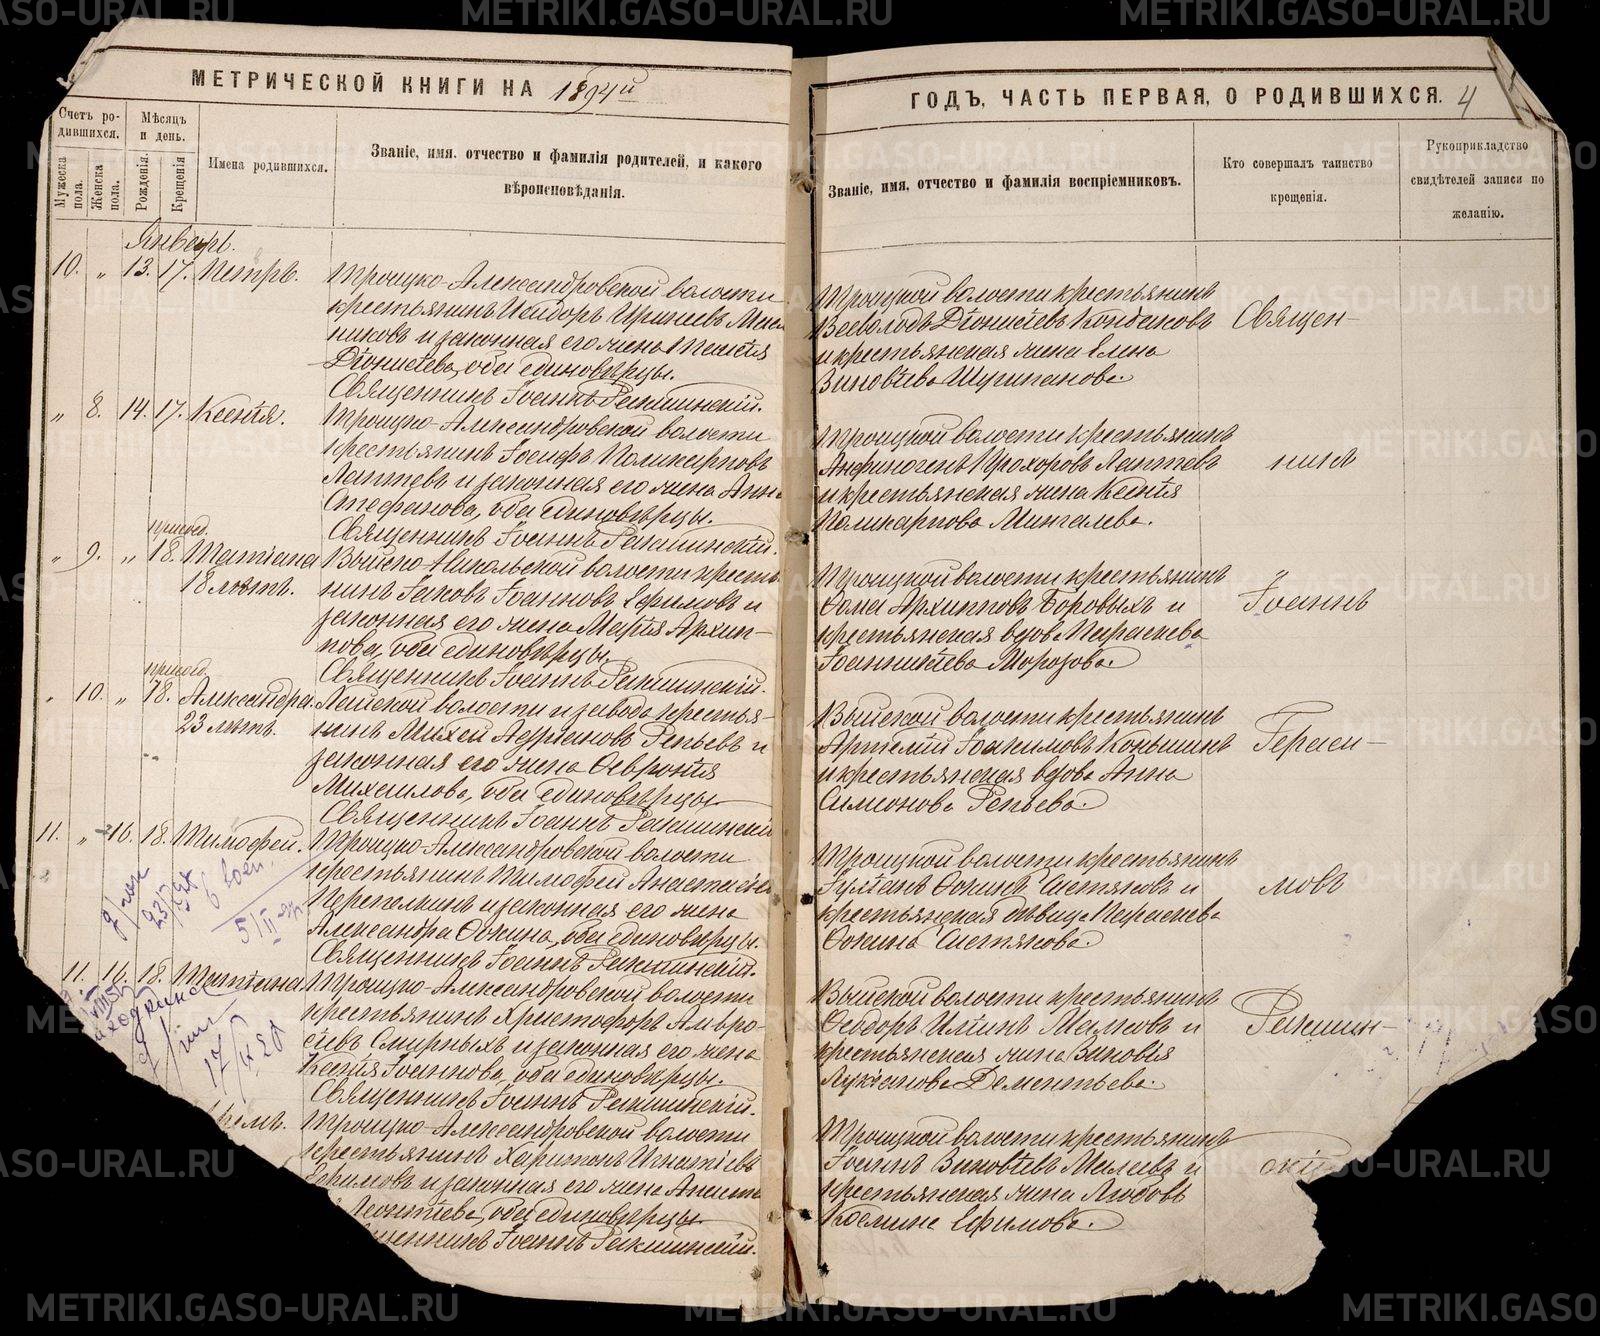 МЕТРИЧЕСКОЙ КНИГИ НА 1894й
ГОДЪ, ЧАСТЬ ПЕРВАЯ, О РОДИВШИХСЯ. 4
Счетъ ро-
дившихся.
Мужеска пола.
Женска пола.
Мѣсяцъ
и день.
Рожденія.
Крещенія
Имена родившихся.
Званіе, имя, отчество и фамилія родителей, и какого
вѣроисповѣданія.
Званіе, имя, отчество и фамилія воспріемниковъ.
Кто совершалъ таинство
крещенія.
Рукоприкладство
свидѣтелей записи по
желанію.
Январь.
10. „ 13. 17. Петръ.
Троицко-Александровской волости
крестьянинъ Исидоръ Ириневъ
никовъ и законная его жена Таисія
Діонисіева, оба единовѣрцы.
Священникъ Іоаннъ Ракшинскій.
Троицкой волости крестьянинъ
Всеволодъ Діонисіевъ Кондаковъ
и крестьянская жена Елена
Зиновіева
Священ-
„ 8. 14. 17. Ксенія.
Троицко-Александровской волости
крестьянинъ Іосифъ Поликарповъ
Лаптевъ и законная его жена Анна
Стефанова, оба единовѣрцы.
Священникъ Іоаннъ Ракшинскій.
Троицкой волости крестьянинъ
Анфиногенъ Прохоровъ Лаптевъ
и крестьянская жена Ксенія
Поликарпова Мингалева.
никъ
присоед.
„ 9. „ 18. Татіана
18 лѣтъ.
Выйско-Никольской волости кресть-
нинъ Іаковъ Іоанновъ Ефимовъ и
законная его жена Марія Архип-
пова, оба единовѣрцы.
Священникъ Іоаннъ Ракшинскій.
Троицкой волости крестьянинъ
Ѳома Архипповъ Боровыхъ и
крестьянская вдова Параскева
Іоанникіева Морозова.
Іоаннъ
присоед.
„ 10. „ 18. Александра
23 лѣтъ.
Лайской волости и завода крестья-
нинъ Михей Адріановъ Репьевъ и
законная его жена Ѳевронія
Михаилова, оба единовѣрцы.
Священникъ Іоаннъ Ракшинскій
Выйской волости крестьянинъ
Артемій Іоакимовъ Коньшинъ
и крестьянская вдова Анна
Симонова Репьева.
Гераси-
11. „ 16. 18. Тимофей.
Троицко-Александровской волости
крестьянинъ Тимофей Анастасіевъ
Перепелкинъ и законная его жена
Александра Ѳокина, оба единовѣрцы.
Священникъ Іоаннъ Ракшинскій.
Троицкой волости крестьянинъ
Ѳокинъ Сметяковъ и
крестьянская дѣвица Параскева
Ѳокина Сметякова.
мовъ
11. 16. 18. Татіана
Троицко-Александровской волости
крестьянинъ Христофоръ Амвро-
сіевъ Смирныхъ и законная его жена
Ксенія Іоаннова, оба единовѣрцы.
Священникъ Іоаннъ Ракшинскій.
Выйской волости крестьянинъ
Ѳеодоръ Илинъ Мамаевъ и
крестьянская жена Зиновія
Лукіанова Дементьева.
Ракшин-
Троицко-Александровской волости
крестьянинъ Харитонъ Игнатіевъ
Ефимовъ и законная его жена
Леонтіева, оба единовѣрцы.
Іоаннъ Ракшинскій.
Троицкой волости крестьянинъ
Іоаннъ Зиновіевъ Малеевъ и
крестьянская жена Любовь
Косьмина Ефимова.
скій
METRIKI.GASO-URAL.RU